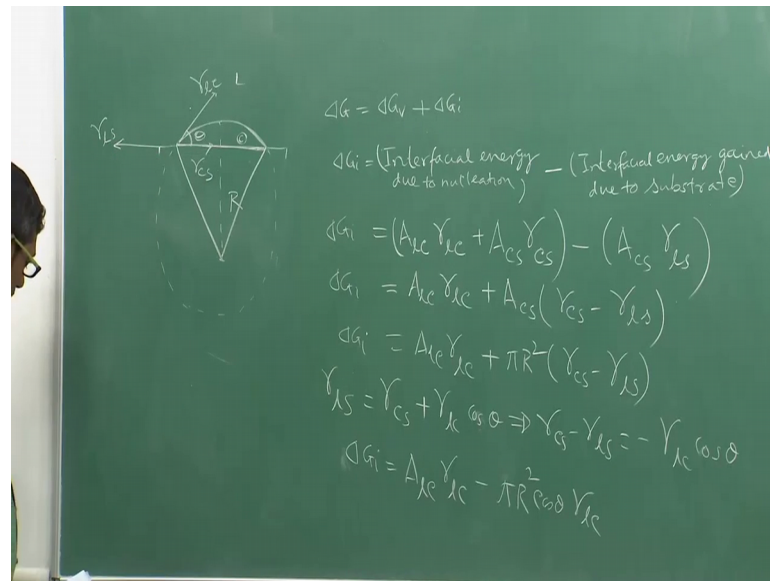 γlc L
γLS
θ θ
γcs
R
ΔG = ΔGv + ΔGi
ΔGi = (Interfacial energy due to nucleation) − (Interfacial energy gained due to substrate)
ΔGi = (Alc γlc + Acs γcs) − (Acs γls)
ΔGi = Alc γlc + Acs (γcs − γls)
ΔGi = Alc γlc + πR² (γcs − γls)
γls = γcs + γlc cosθ ⇒ γcs − γls = − γlc cosθ
ΔGi = Alc γlc − πR² cosθ γlc